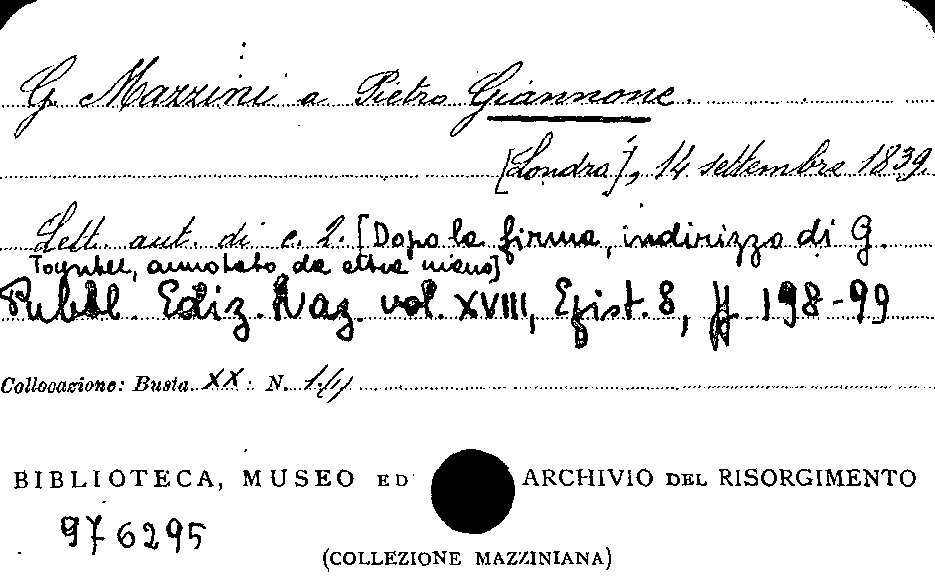 G. Mazzini a Pietro Giannone.
[Londra], 14 settembre 1839.
Lett. aut. di c. 2. [Dopo la firma, indirizzo di G.
Toynbee, annotato da altra mano]
Pubbl. Ediz. Naz. vol. XVIII, Epist. 8, pp. 198-99
Collocazione: Busta XX: N. 1/(1)
BIBLIOTECA, MUSEO ED ARCHIVIO DEL RISORGIMENTO
976295
(COLLEZIONE MAZZINIANA)